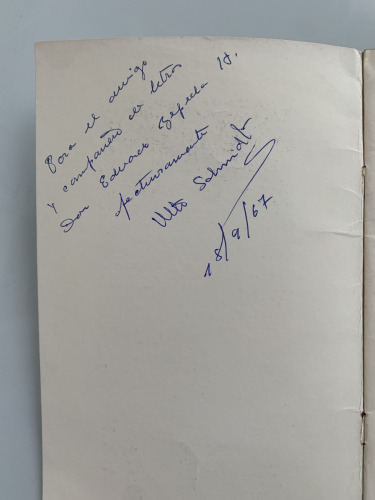 Para el amigo
y compañero de letras
Don Eduardo Zepeda H.
afectuosamente
Schmidt
18/9/67